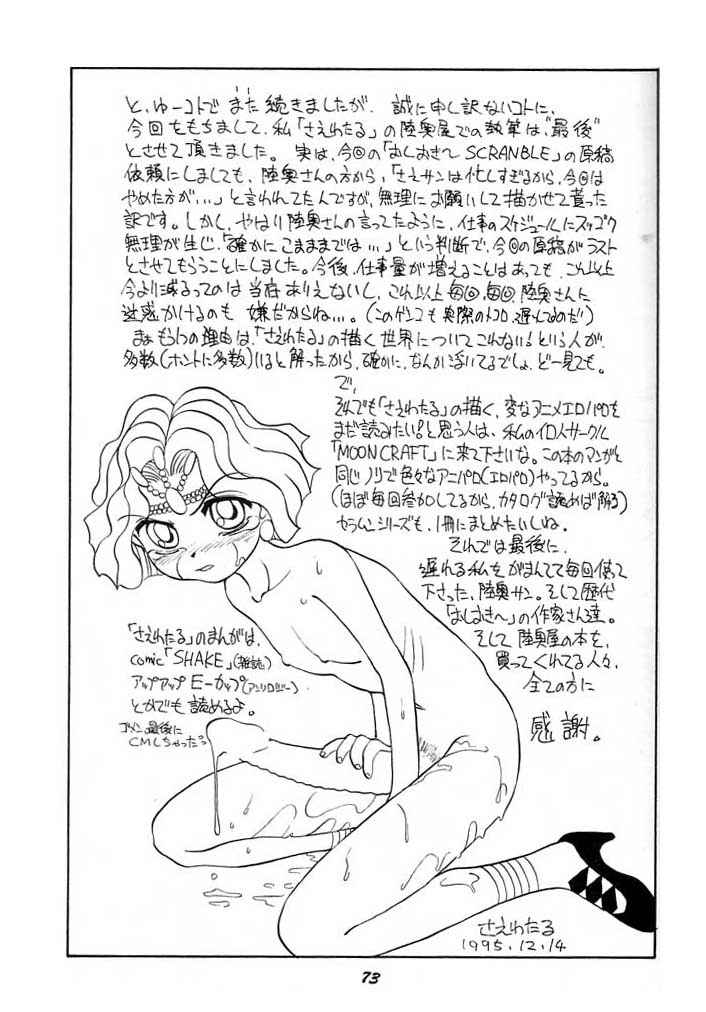 と、ゆーコトでまた続きましたが、誠に申し訳ないコトに、
今回をもちまして、私「さえわたる」の陸奥屋での執筆は"最後"
とさせて頂きました。実は、今回の「おしおき〜SCRANBLE」の原稿
依頼にしましても、陸奥さんの方から、「さえサンは忙しすぎるから、今回は
やめた方が…」と言われてたんですが、無理にお願いして描かせて貰った
訳です。しかし、やはり陸奥さんの言ってたように、仕事のスケジュールにスッゴク
無理が生じ、「確かにこまままでは…」という判断で、今回の原稿がラスト
とさせてもらうことにしました。今後、仕事量が増えることはあっても、これ以上
今より減るってのは当在ありえないし、これ以上毎回、毎回、陸奥さんに
迷惑かけるのも嫌だからね…。(このゲンコも実際のトコロ、遅れてるのだ)
まぁもう1つの理由は、「さえわたる」の描く世界についてこれない!という人が、
多数(ホントに多数)いると解ったから、確かに、なんか浮いてるでしょ、どー見ても。
で、
それでも「さえわたる」の描く、変なアニメエロパロを
まだ読みたい!と思う人は、私の個人サークル
「MOON CRAFT」に来て下さいな。この本のマンガと
同じノリで色々なアニパロ(エロパロ)やってるから。
(ほぼ毎回参加してるから、カタログ読めば解る)
セラムンシリーズも、1冊にまとめたいしね。
それでは最後に、
遅れる私をがまんして毎回使って
下さった、陸奥サン。そして歴代
「おしおき〜」の作家さん達。
そして陸奥屋の本を、
買ってくれてる人々、
全ての方に
感謝。
「さえわたる」のまんがは、
comic「SHAKE」(雑誌)
アップアップEーカップ(アンソロジー)
とかでも読めるよ。
ゴメン最後に
CMしちゃったっ
さえわたる
1995.12.14
73